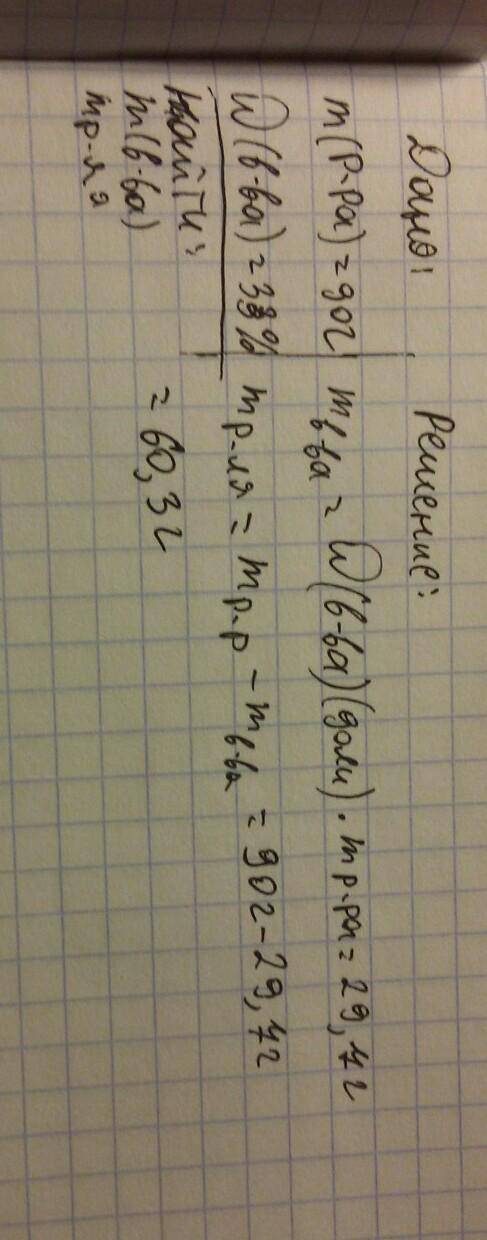 Дано:
m(р-ра) = 90г
W(в-ва) = 33%
Найти:
m(в-ва)
mр-ля
Решение:
mв-ва = W(в-ва)(доли) · mр-ра = 29,7г
mр-ля = mр-р - mв-ва = 90г - 29,7г
= 60,3г